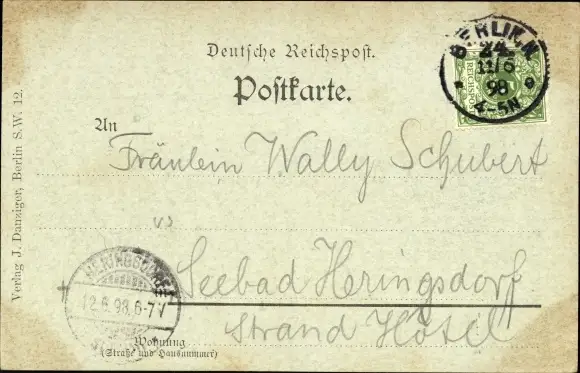 BERLIN.N
24
11/6
98
4-5N
REICHSPOST
Deutsche Reichspost.
Postkarte.
An
Fräulein Wally Schubert
Seebad Heringsdorf
Strand Hotel
HERINGSDORF
12.6.98.6-7V
Wohnung
(Straße und Hausnummer)
Verlag J. Danziger, Berlin S.W. 12.